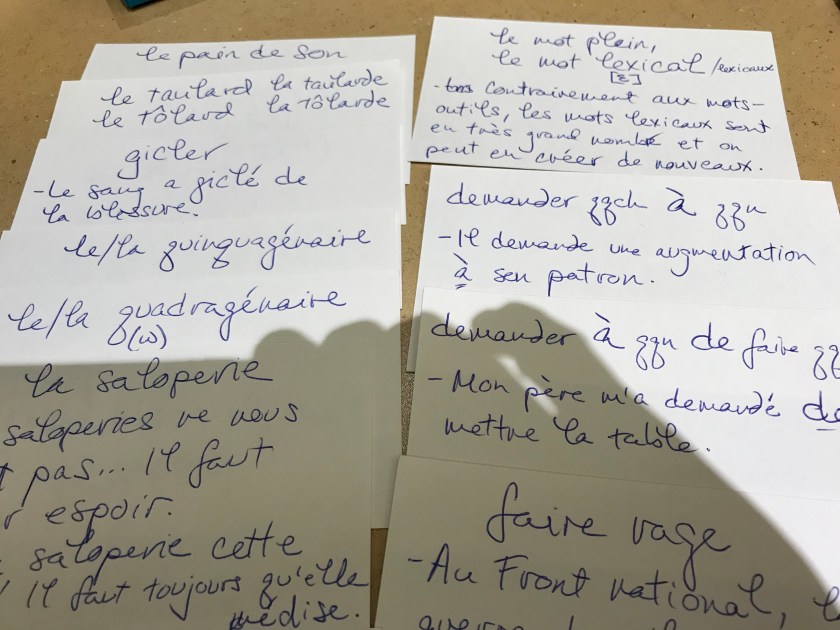 le pain de son
le taulard la taularde
le tôlard la tôlarde
gicler
-Le sang a giclé de
la blessure.
le/la quinquagénaire
le/la quadragénaire
(w)
la saloperie
saloperies ne nous
pas... Il faut
espoir.
saloperie cette
Il faut toujours qu'elle
médise.
le mot plein,
le mot lexical /lexicaux
[ɛ]
- Contrairement aux mots-
outils, les mots lexicaux sont
en très grand nombre et on
peut en créer de nouveaux.
demander qqch à qqn
-Il demande une augmentation
à son patron.
demander à qqn de faire qq
-Mon père m'a demandé de
mettre la table.
faire rage
-Au Front national, l